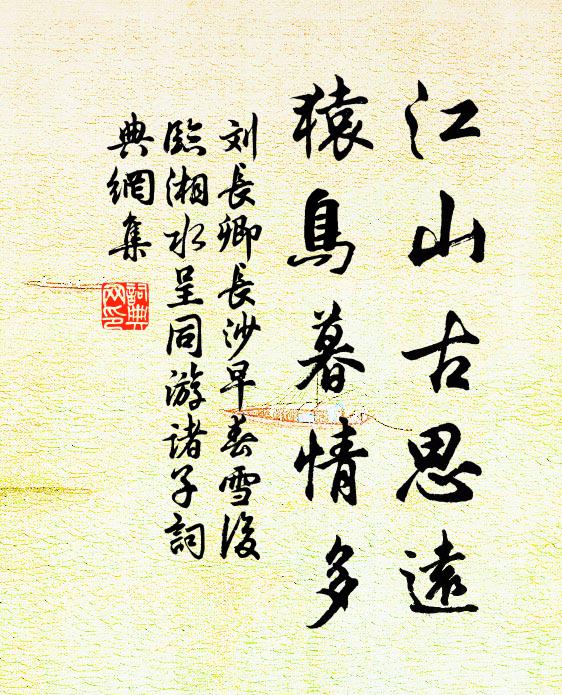 江山古思遠
猿鳥暮情多
刘長卿長沙早春雪後
臨湘水呈同游诸子詞
典網集
詞典
网印